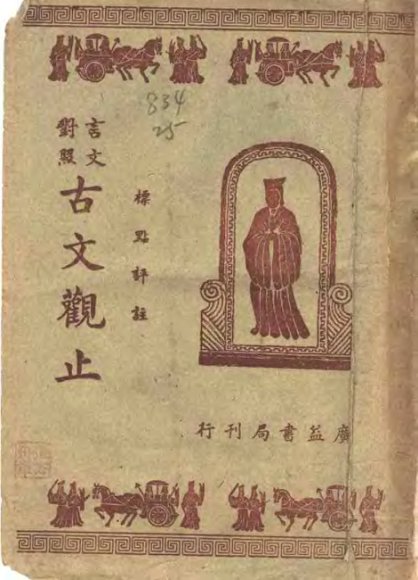 834
25
言文
對照
古文觀止
標點評註
廣益書局刊行